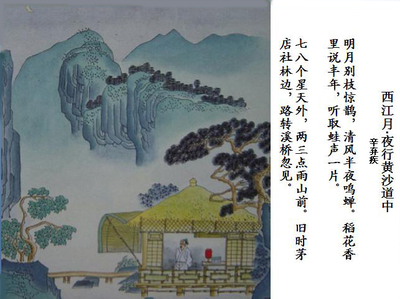 西江月·夜行黄沙道中
辛弃疾
明月别枝惊鹊，清风半夜鸣蝉。稻花香
里说丰年，听取蛙声一片。
七八个星天外，两三点雨山前。旧时茅
店社林边，路转溪桥忽见。